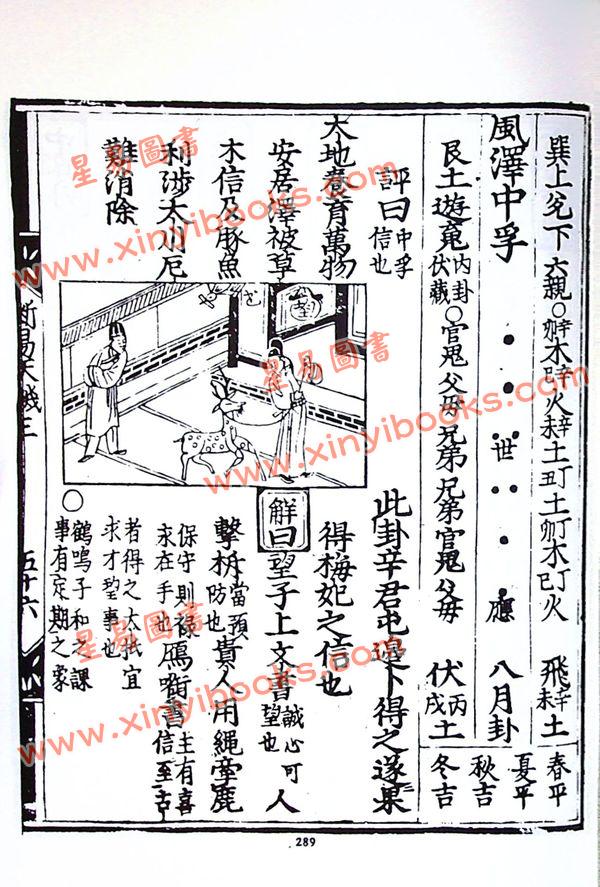 巽上兌下六親○辛夘木辛巳火辛未土丁丑土丁夘木丁巳火 飛辛未土
風澤中孚 世 應 八月卦
艮土遊䰟內卦伏藏○官鬼父母兄弟兄弟官鬼父母 伏丙戌土
春平
夏平
秋吉
冬吉
評曰中孚信也
天地養育萬物
安居澤被草
木信及豚魚
利涉大川厄
難消除
望
此卦辛君屯邅卜得之遂果
得梅妃之信也
解曰望子上文書誠心可望也人
擊柝當預防也貴人用繩牽鹿
保守則祿求在手也鴈啣書主有喜信至吉
者得之大抵宜求才望事也
○鶴鳴子和之課事有定期之象
斷易天機三
五十六
289
星易圖書
www.xinyibooks.com
星易圖書
www.xinyibooks.com
星易圖書
www.xinyibooks.com